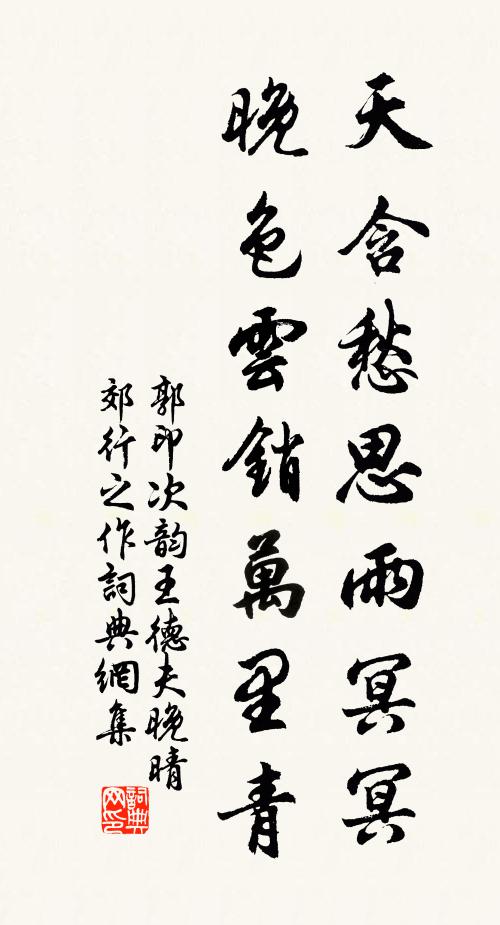 天含愁思雨冥冥
晚色雲銷萬里青
郭印次韵王德夫晚晴
郊行之作詞典網集
詞典网印